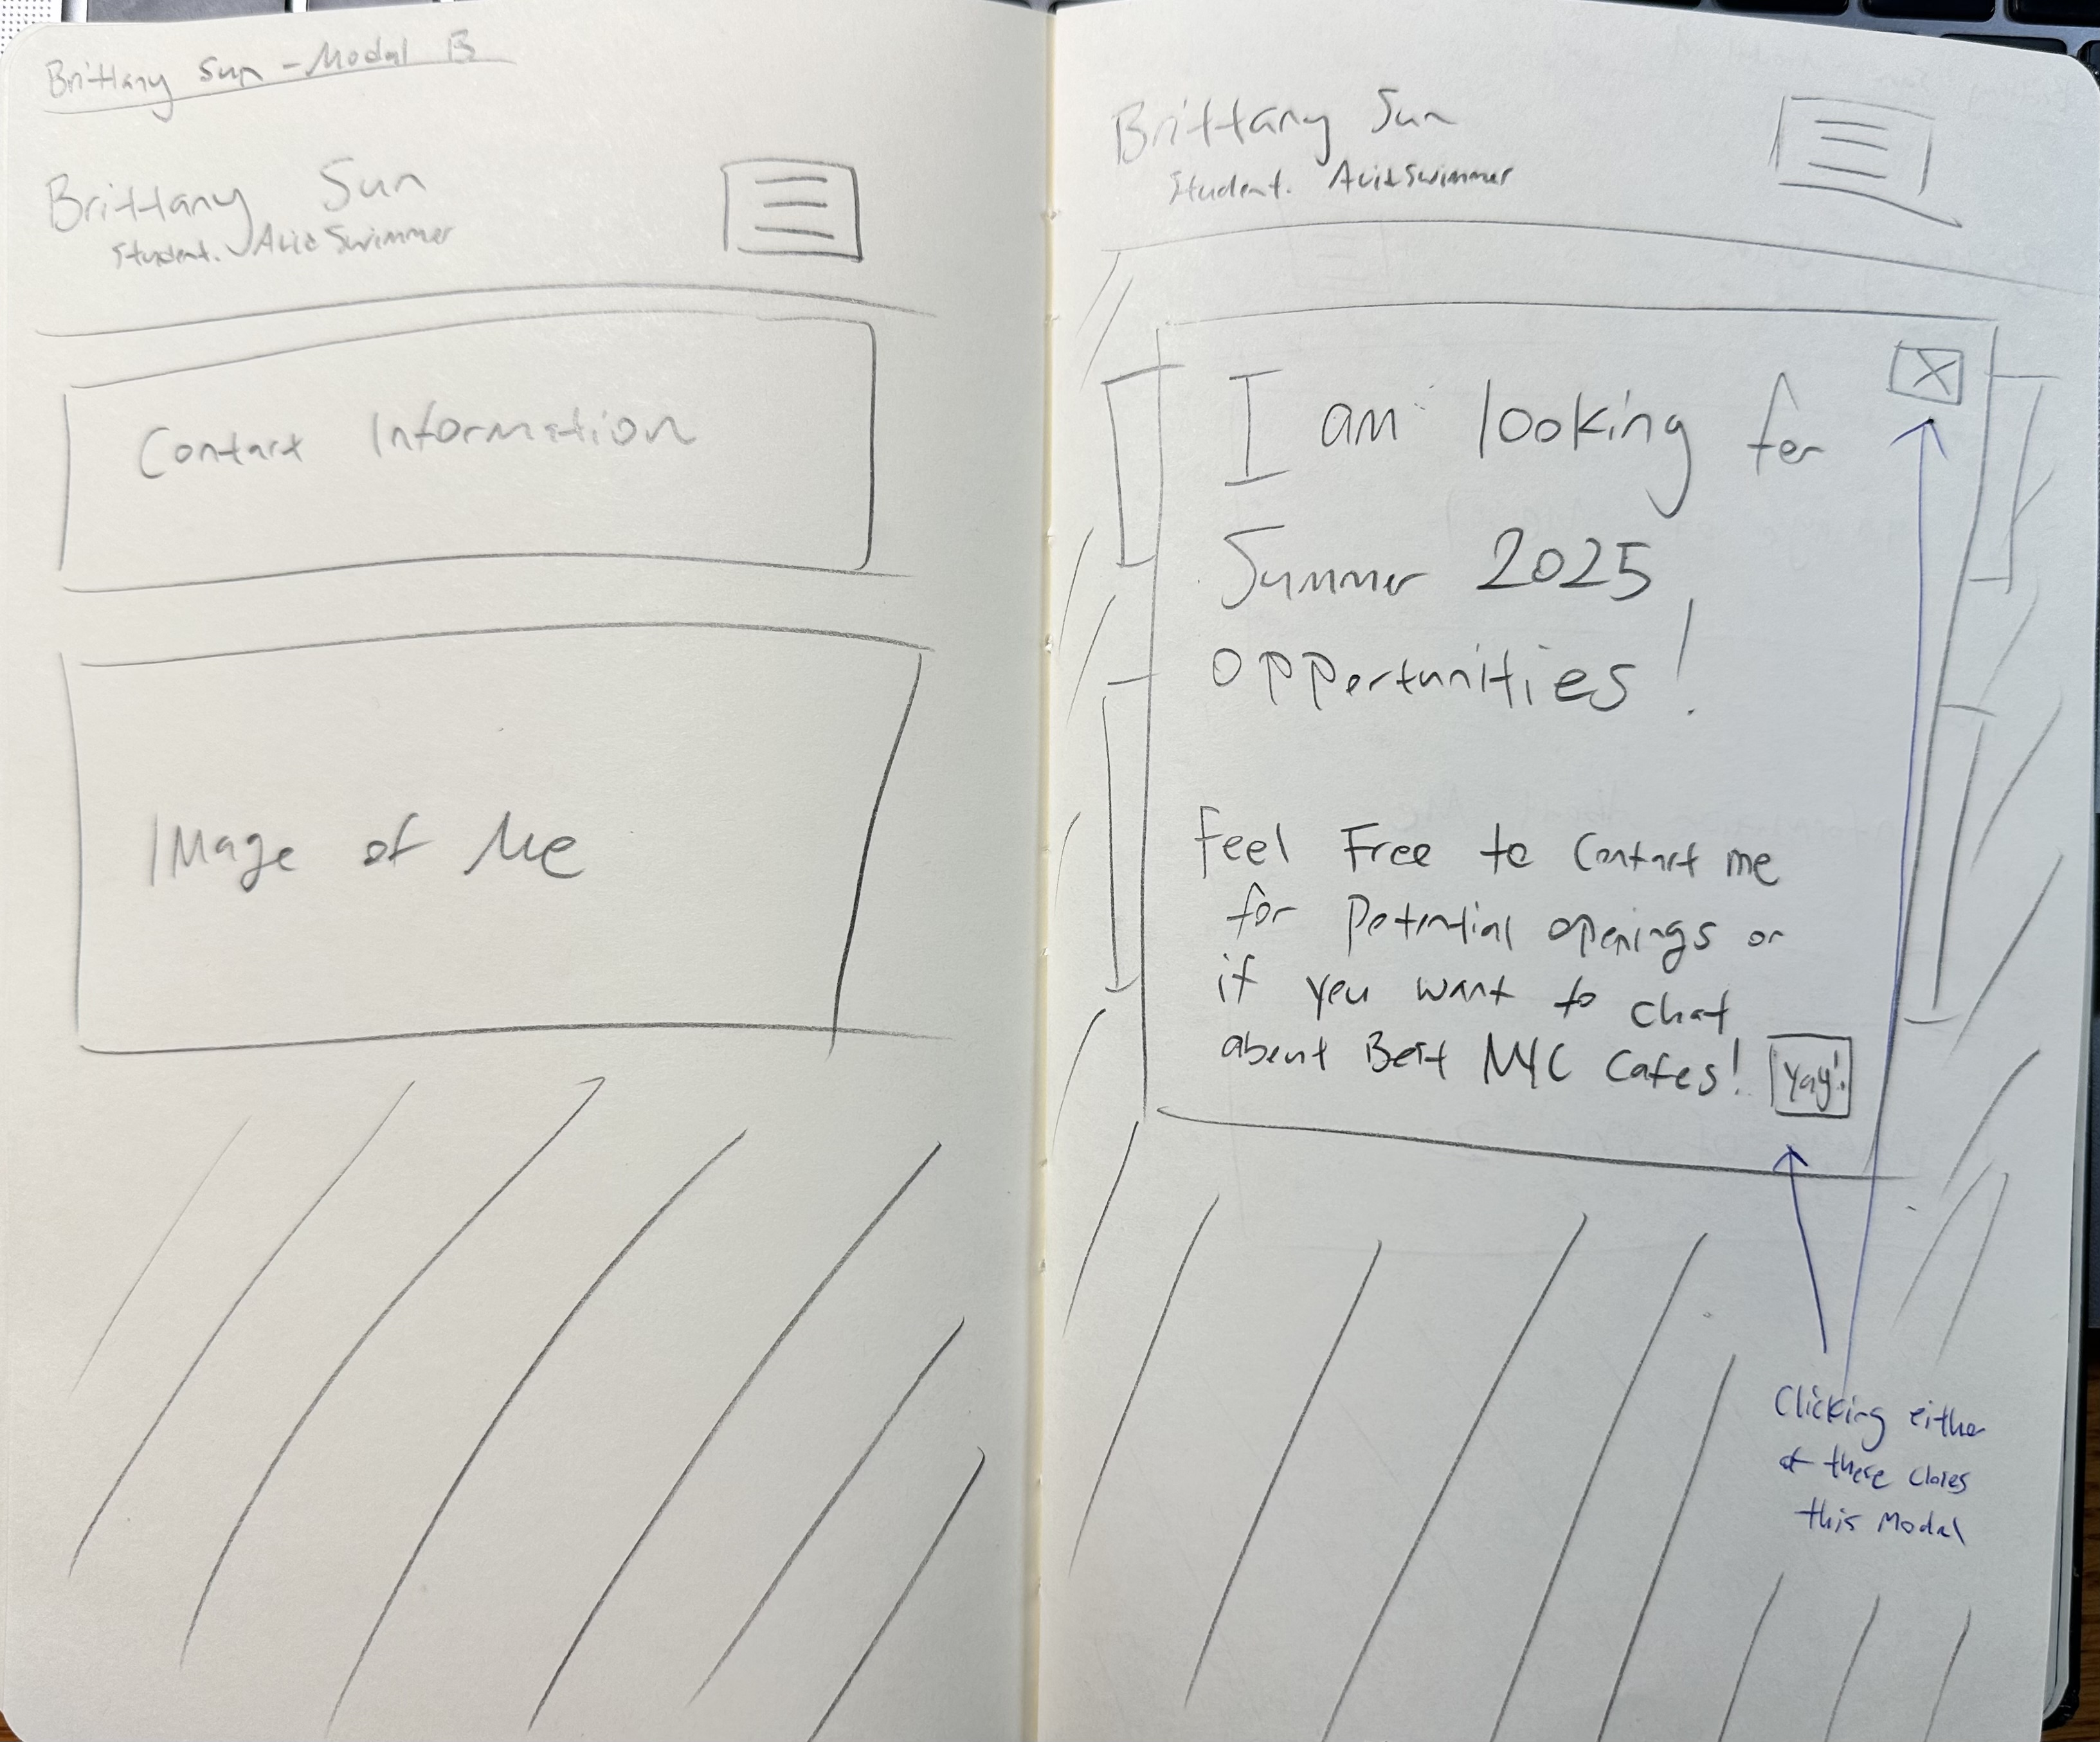 Brittany Sun - Modal B
Brittany Sun
Student. Avid Swimmer
Contact Information
Image of Me
Brittany Sun
Student. Avid Swimmer
X
I am looking for
Summer 2025
opportunities!
Feel Free to Contact me
for Potential openings or
if you want to chat
about Best NYC Cafes!
Yay!
Clicking either
of these closes
this Modal